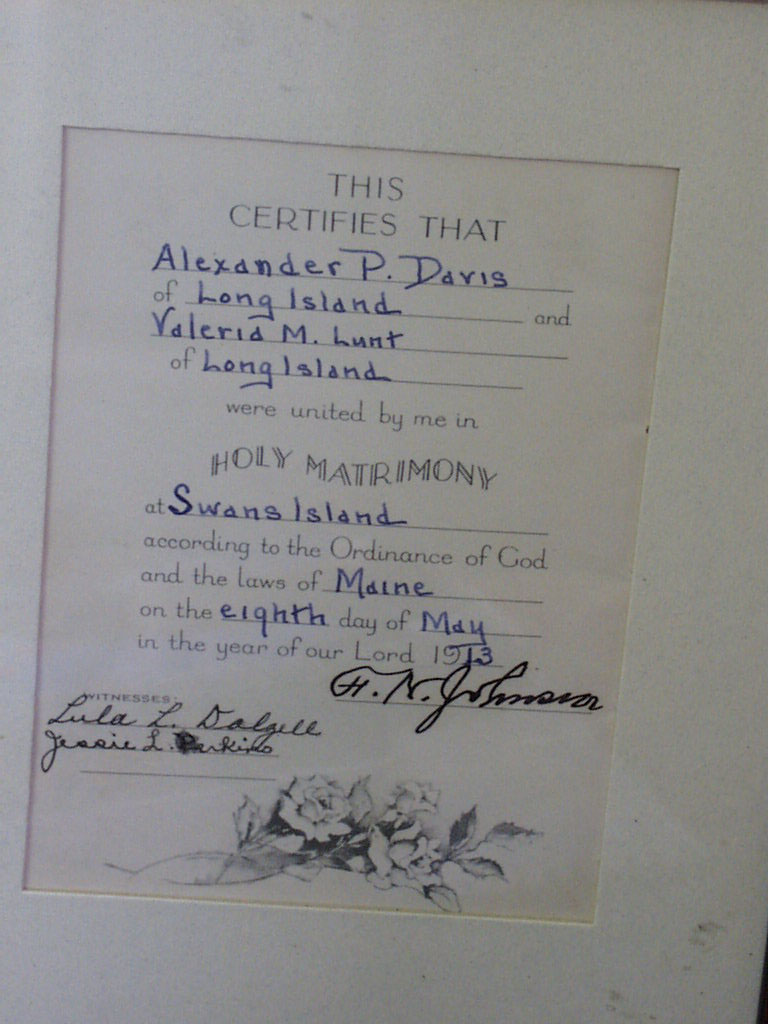 THIS
CERTIFIES THAT
Alexander P. Davis
of Long Island and
Valeria M. Lunt
of Long Island
were united by me in
HOLY MATRIMONY
at Swans Island
according to the Ordinance of God
and the laws of Maine
on the eighth day of May
in the year of our Lord 1913
F. N. Johnson
WITNESSES:
Lula L. Dalzell
Jessie L. Parkins